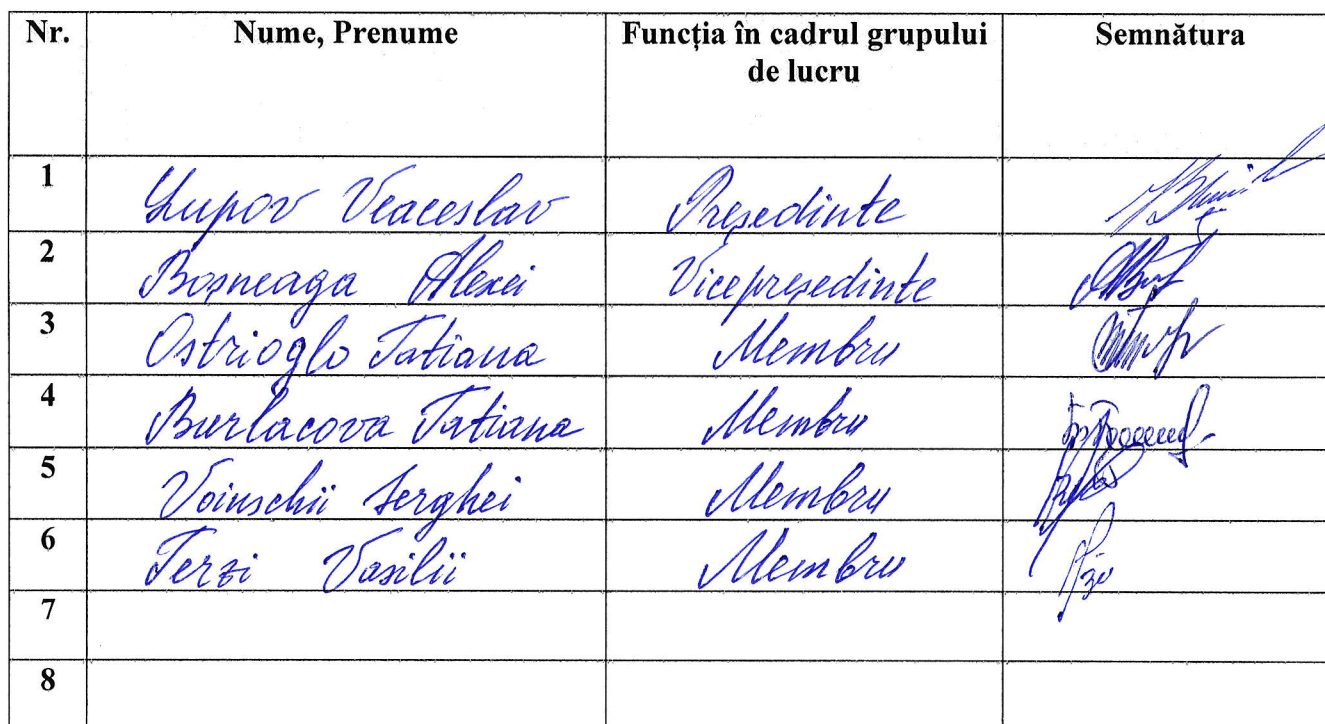 Nr. Nume, Prenume Funcția în cadrul grupului de lucru Semnătura
1 Lupov Veaceslav Președinte
2 Boșneaga Alexei Vicepreședinte
3 Ostrioglo Tatiana Membru
4 Burlacova Tatiana Membru
5 Voinschii Serghei Membru
6 Terzi Vasilii Membru
7
8